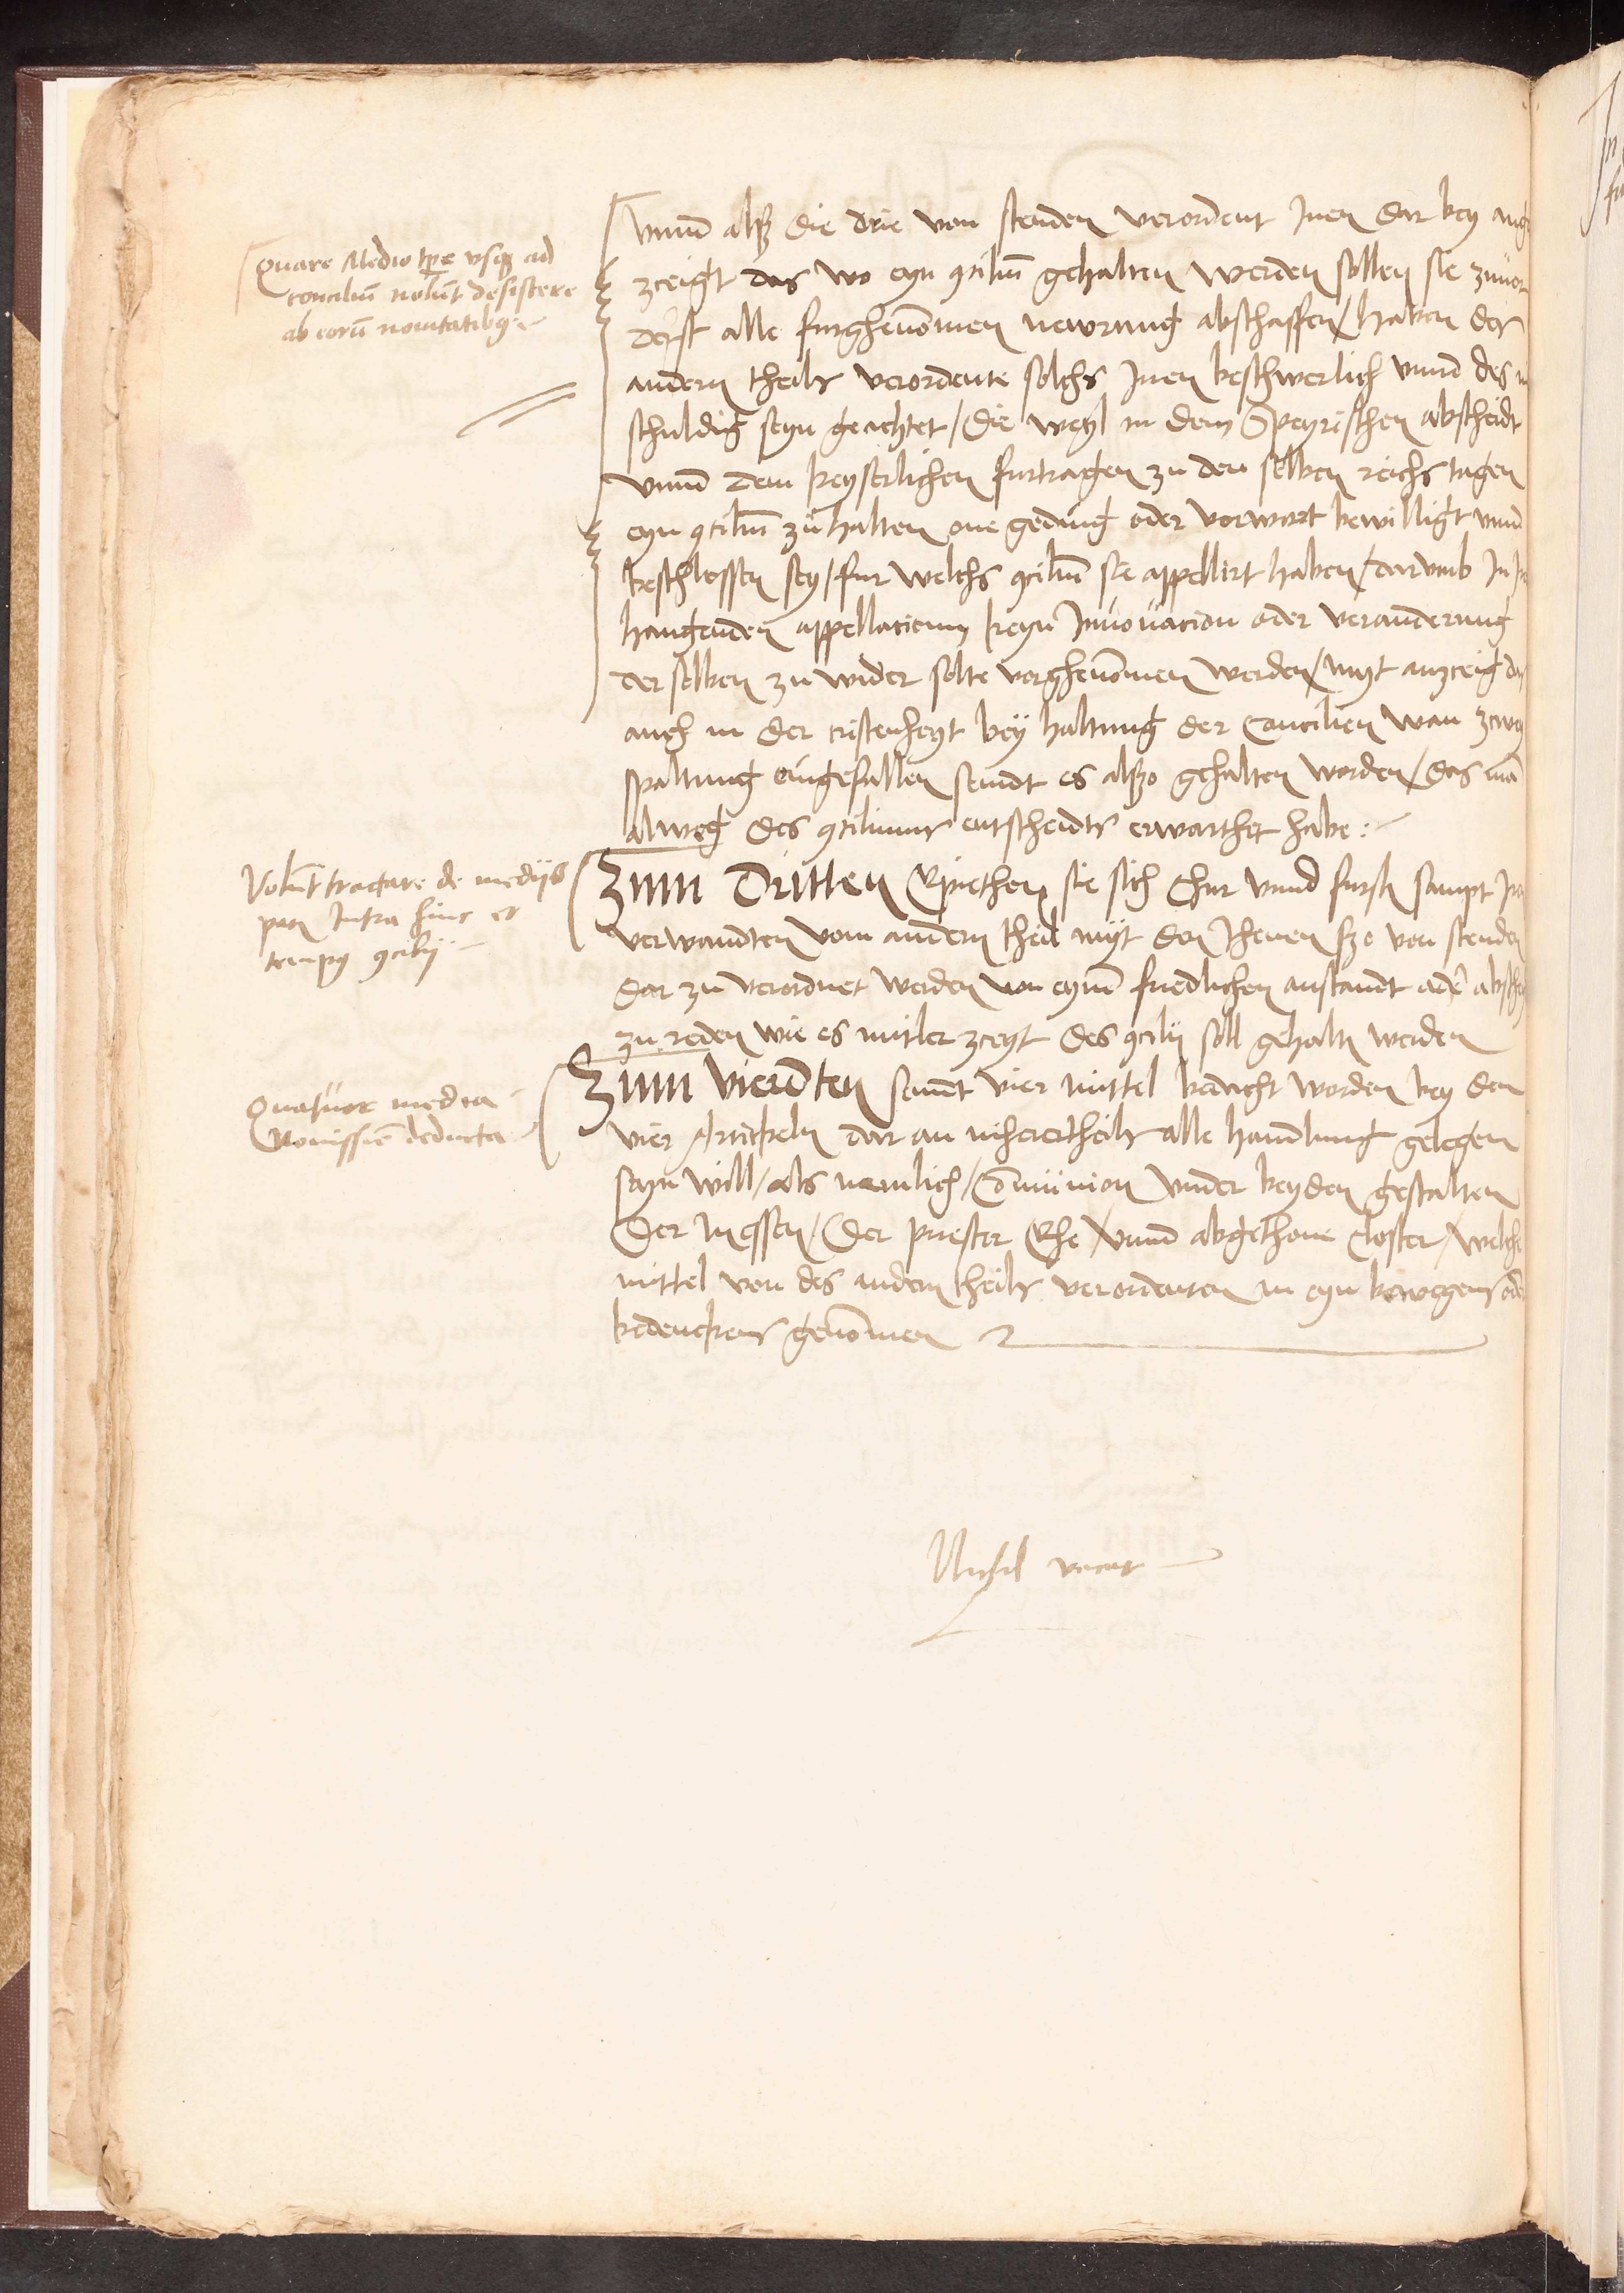 Quare Medio tp̄e vsq ad
conciliū nolūt desistere
ab eorū nouitatibq
vnnd alß die drie von stenden verordent Jnen dar bey ang
zceigt das wo eyn 9ciliū gehalten werden sollen sie zuuor
derst alle furghenōmen newrung abschaffen / haben der
andern theils verordente solchs Jnen beschwerlich vnnd des
schuldig seyn geachtet / die weyl in dem Speyrischen abscheidt
vnnd dem keyserlichen furtragen zu den selben reichs tagen
eyn 9ciliū zu halten one geding oder vorwort bewilligt vnnd
beschlossen sey / fur welchs 9ciliū sie appellirt haben / darumb Jn
hangenden appellacionn keyn Jnnouacion oder veranderung
der selben zu wider solte vorghenōmen werden / myt anzceig
auch in der cristenheyt bey haltung der Concilien wan zcwey
spaltung eingefallen seindt es alßo gehalten worden / das mā
alweg des 9ciliums entscheidts erwarthet habe :
Volūt tractare de medijs
pacis Intra hinc et
tempq 9cilij
Zum Dritten Erpiethen sie sich Chur vnnd furstn sampt
verwandten vom andern theil myt den Jhenen ßo von stenden
dar zu verordnet werden von eynē friedlichen anstandt ader
zu reden wie es mitler zceyt des 9cilij soll gehaltn werden
Quatuor media
Nouissīe deducta
Zum Vierdten seindt vier mittel bedacht worden bey den
vier Artickeln dar an iheiertheils alle handlung gelegen
seyn will / als nemlich / Cōmunion vnder beyden gestalten
Der messen / Der priester Ehe / vnnd abgethone Closter / welche
mittel von des andern theils verordenten in eyn bewegens
bedenckens genōmen
Nichil vacat